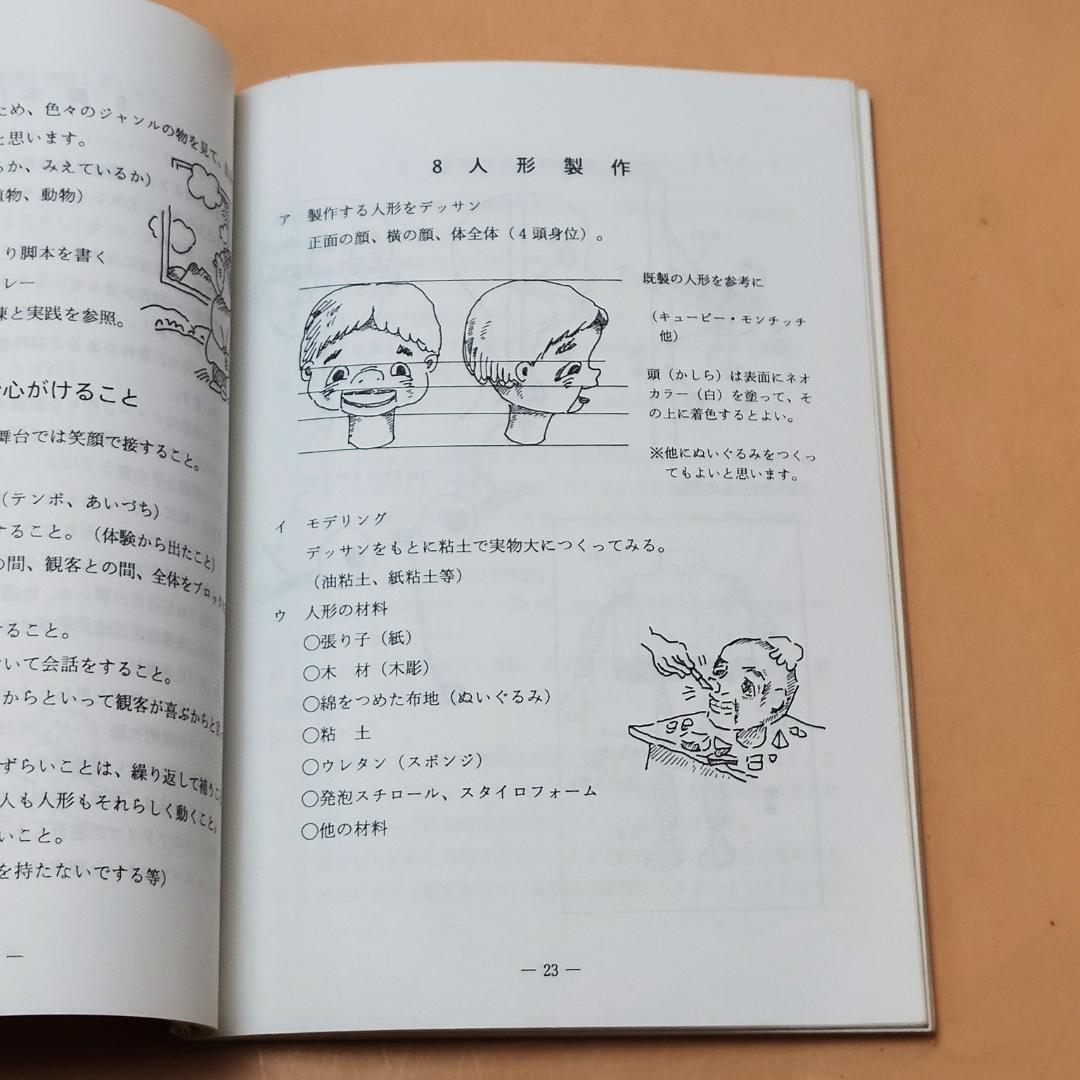 ため、色々のジャンルの物を見て、
と思います。
るか、みえているか）
植物、動物）
り脚本を書く
レー
練と実践を参照。
心がけること
舞台では笑顔で接すること。
（テンポ、あいづち）
すること。（体験から出たこと）
の間、観客との間、全体をブロック
すること。
おいて会話をすること。
からといって観客が喜ぶからと
ずらいことは、繰り返して補うこ
人も人形もそれらしく動くこと。
いこと。
を持たないでする等）
8 人 形 製 作
ア 製作する人形をデッサン
正面の顔、横の顔、体全体（４頭身位）。
既製の人形を参考に
（キューピー・モンチッチ
他）
頭（かしら）は表面にネオ
カラー（白）を塗って、そ
の上に着色するとよい。
※他にぬいぐるみをつくっ
てもよいと思います。
イ モデリング
デッサンをもとに粘土で実物大につくってみる。
（油粘土、紙粘土等）
ウ 人形の材料
○張り子（紙）
○木　材（木彫）
○綿をつめた布地（ぬいぐるみ）
○粘　土
○ウレタン（スポンジ）
○発泡スチロール、スタイロフォーム
○他の材料
— 23 —